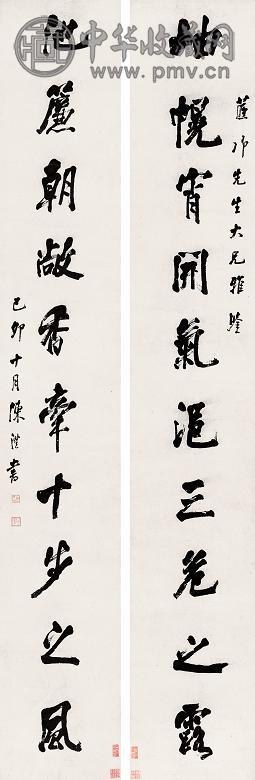 中华收藏网
www.pmv.cn
先生大兄雅鑒
幌宵開氣浥三危之露
簾朝敞香牽十步之風
己卯十月陳澧書